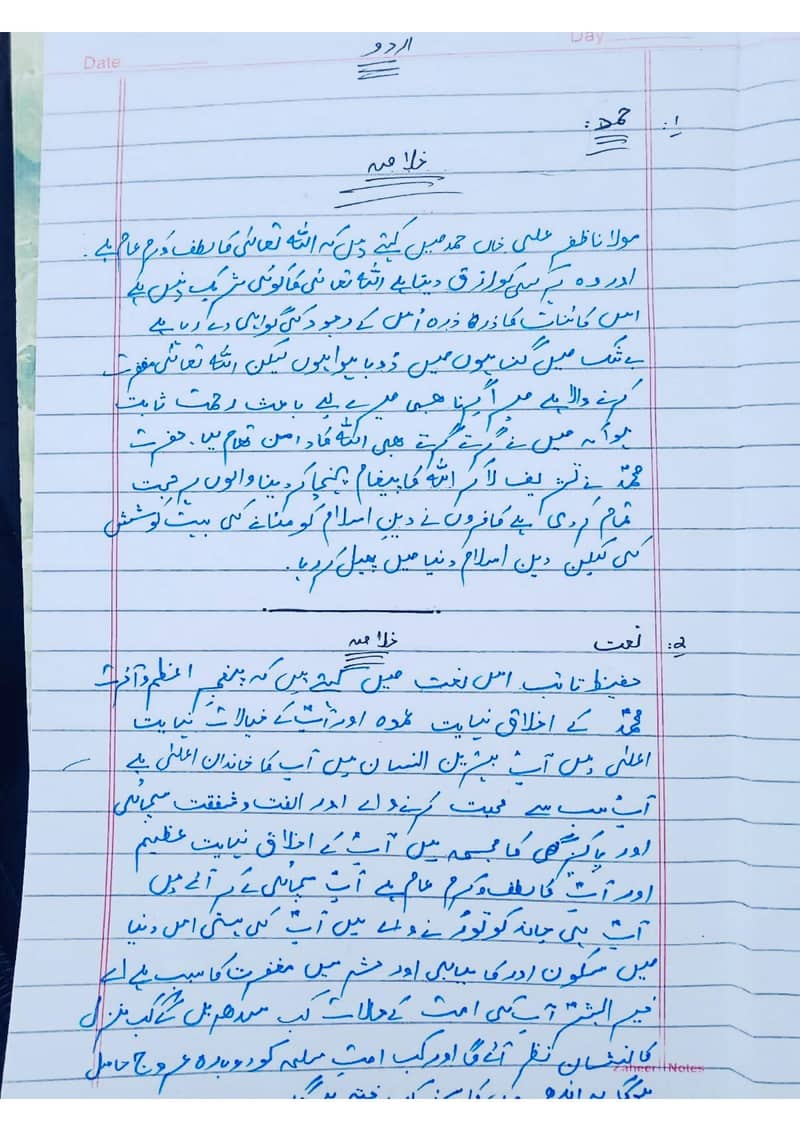 Date
Day
اردو
1: حمد:
خلاصہ
مولانا ظفر علی خاں حمد میں کہتے ہیں کہ اللہ تعالیٰ کا لطف و کرم عام ہے۔
اور وہ ہر کسی کو رزق دیتا ہے اللہ تعالیٰ کا کوئی شریک نہیں ہے
اس کائنات کا ذرہ ذرہ اُس کے وجود کی گواہی دے رہا ہے
بے شک میں گناہوں میں ڈوبا ہوا ہوں لیکن اللہ تعالیٰ مغفرت
کرنے والا ہے میرا گرنا بھی میرے لیے باعث رحمت ثابت
ہوا کہ میں نے گرتے گرتے بھی اللہ کا دامن تھام لیا۔ حضرت
محمدؐ نے تشریف لا کر اللہ کا پیغام پہنچا کر دینا والوں پر حجت
تمام کر دی ہے کافروں نے دینِ اسلام کو مٹانے کی بہت کوشش
کی لیکن دین اسلام دنیا میں پھیل کر رہا۔
2: نعت
خلاصہ
حفیظ تائب اس نعت میں کہتے ہیں کہ پیغمبرِ اعظم و آخرت
محمدؐ کے اخلاق نہایت عمدہ اور آپؐ کے خیالات نہایت
اعلیٰ ہیں آپؐ بہترین انسان ہیں آپ کا خاندان اعلیٰ ہے
آپؐ سب سے محبت کرنے والے اور الفت و شفقت سچائی
اور پاکیزگی کا مجسمہ ہیں آپؐ کے اخلاق نہایت عظیم
اور آپؐ کا لطف و کرم عام ہے آپؐ سچائی کے ہیں
آپؐ کو توڑنے والے ہیں آپؐ کی ہستی اس دنیا
میں سکون اور کامیابی اور حشر میں مغفرت کا سبب ہے اے
خیر البشرؐ آپ کی امت کے حالات کب سدھریں گے کب منزل
کا نشان نظر آئے گا اور کب امتِ مسلمہ کو دوبارہ عروج حاصل
Zaheer Notes